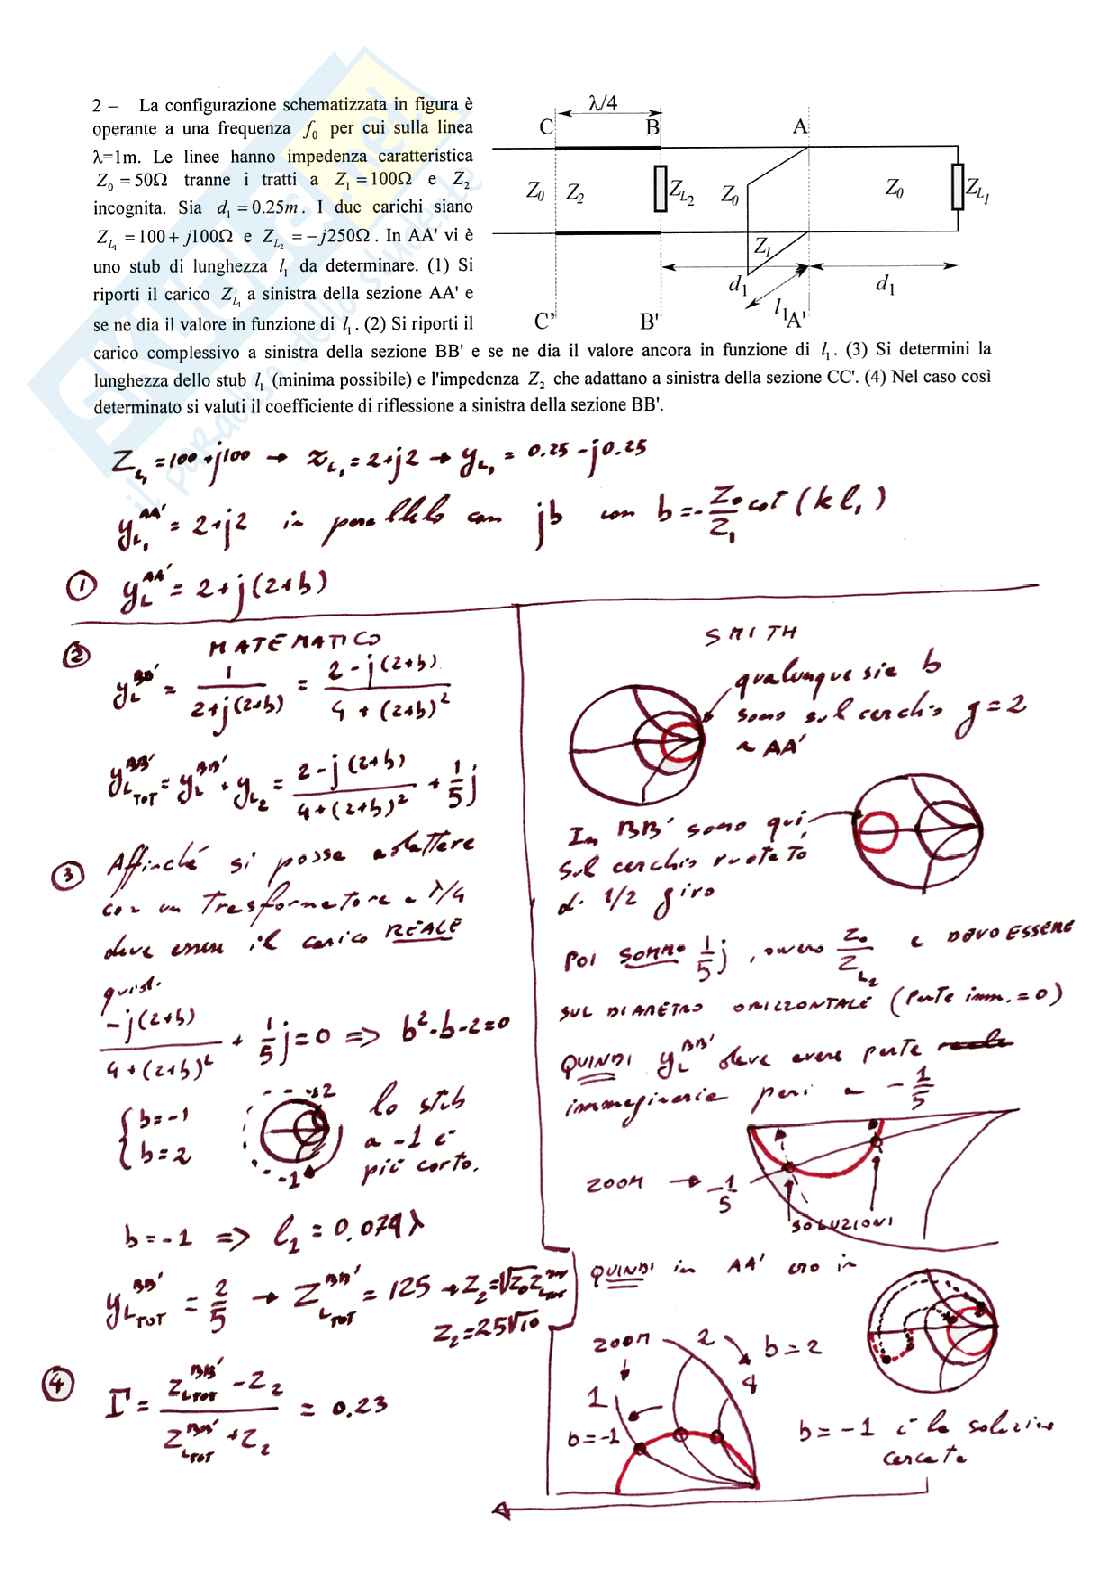 2 – La configurazione schematizzata in figura è
operante a una frequenza f₀ per cui sulla linea
λ=1m. Le linee hanno impedenza caratteristica
Z₀ = 50Ω tranne i tratti a Z₁ = 100Ω e Z₂
incognita. Sia d₁ = 0.25m. I due carichi siano
Z_L₁ = 100 + j100Ω e Z_L₂ = −j250Ω. In AA' vi è
uno stub di lunghezza l₁ da determinare. (1) Si
riporti il carico Z_L₁ a sinistra della sezione AA' e
se ne dia il valore in funzione di l₁. (2) Si riporti il
carico complessivo a sinistra della sezione BB' e se ne dia il valore ancora in funzione di l₁. (3) Si determini la
lunghezza dello stub l₁ (minima possibile) e l'impedenza Z₂ che adattano a sinistra della sezione CC'. (4) Nel caso così
determinato si valuti il coefficiente di riflessione a sinistra della sezione BB'.
λ/4
C B A
Z₀ Z₂ Z_L₂ Z₀ Z₀ Z_L₁
Z₁
d₁ d₁
l₁
C' B' A'
Z_L₁ = 100+j100 → z_L₁ = 2+j2 → y_L₁ = 0.25-j0.25
y_L₁^AA' = 2+j2 in parallelo con jb con b = -Z₀/Z₁ cot(kl₁)
① y_L^AA' = 2+j(2+b)
② MATEMATICO
y_L^BB' = 1/(2+j(2+b)) = (2-j(2+b))/(4+(2+b)²)
y_LTOT^BB' = y_L^BB' + y_L₂ = (2-j(2+b))/(4+(2+b)²) + 1/5 j
③ Affinché si possa adattare
con un Trasformatore a λ/4
deve essere il carico REALE
quindi
-j(2+b)/(4+(2+b)²) + 1/5 j = 0 ⇒ b²-b-2=0
{ b=-1
b=2
2
-1
lo stub
a -1 è
più corto.
b=-1 ⇒ l₂ = 0.079λ
y_LTOT^BB' = 2/5 → Z_LTOT^BB' = 125 → Z₂ = √Z₀Z_LTOT^BB'
Z₂ = 25√10
④ Γ = (Z_LTOT^BB' - Z₂)/(Z_LTOT^BB' + Z₂) = 0.23
SMITH
qualunque sia b
sono sul cerchio g=2
a AA'
In BB' sono qui,
sul cerchio ruotato
di 1/2 giro
POI SOMMO 1/5 j, ovvero Z₀/Z_L₂ E DEVO ESSERE
SUL DIAMETRO ORIZZONTALE (parte imm.=0)
QUINDI y_L^BB' deve avere parte
immaginaria pari a -1/5
ZOOM → -1/5
SOLUZIONI
QUINDI in AA' ero in
ZOOM 2 b=2
4
1
b=-1
b=-1 è la soluzione
cercata